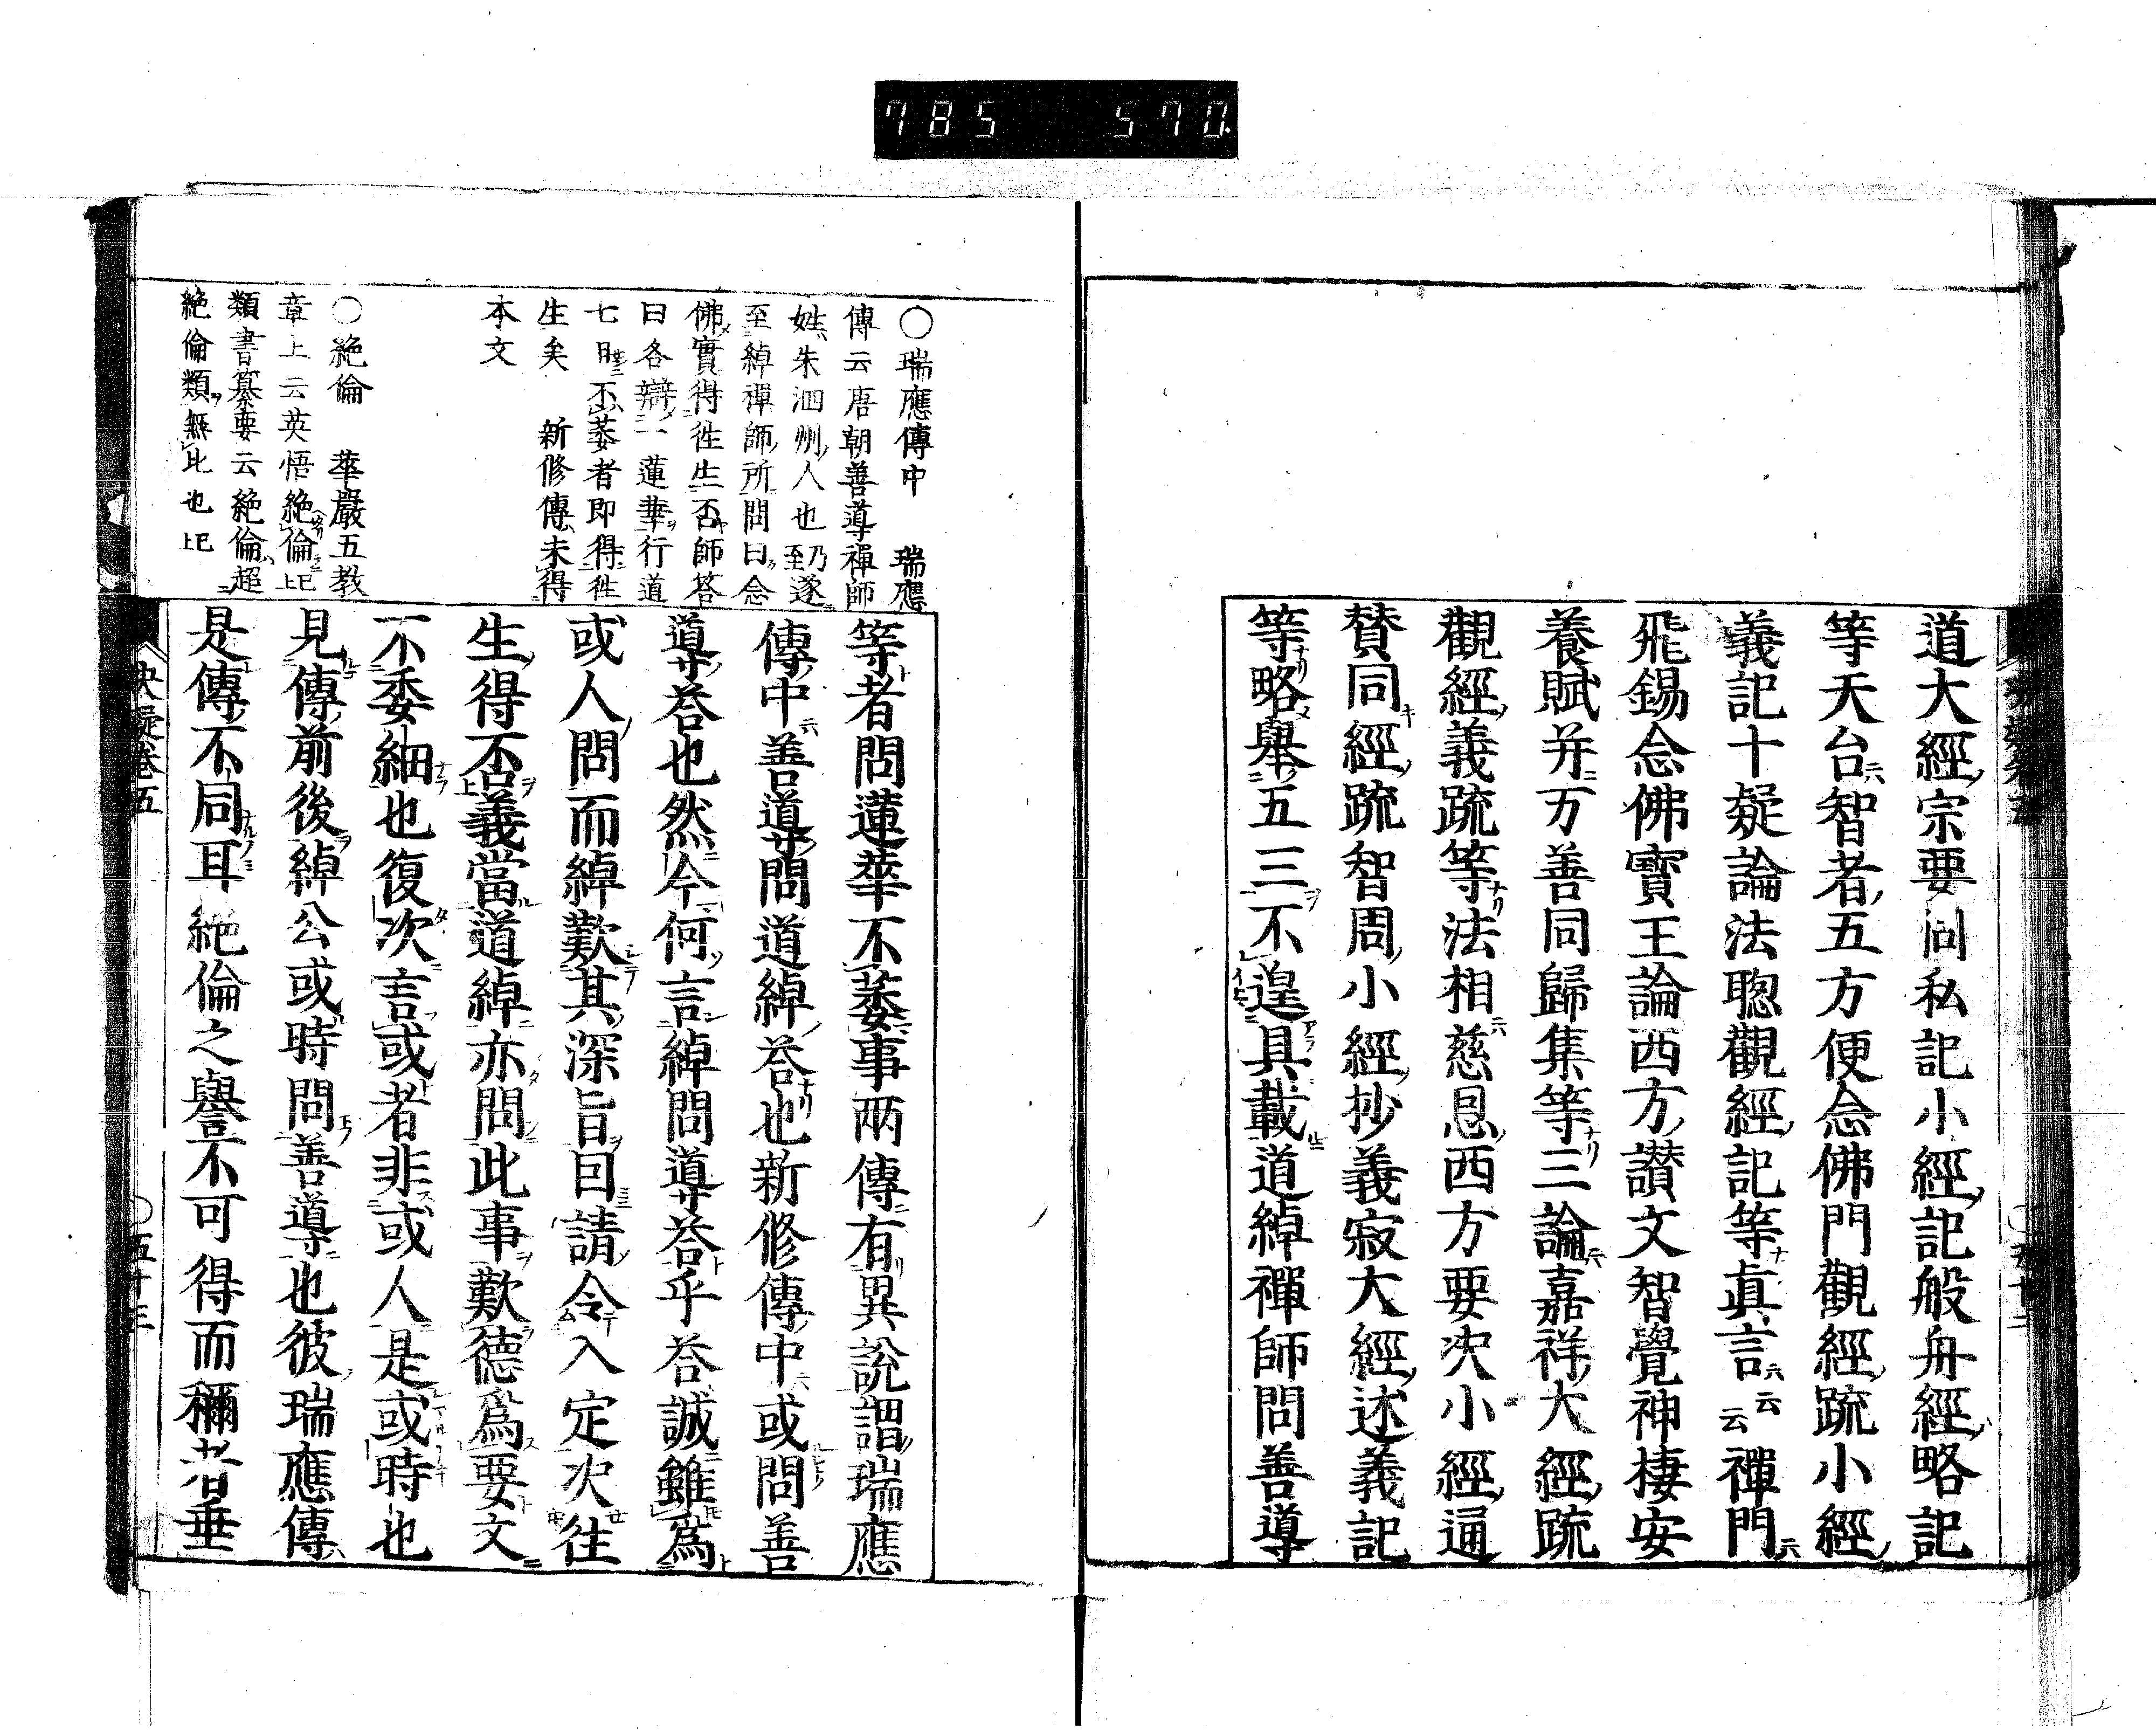 785 570
道大經宗要问私記小經記般舟經略記
等天台智者五方便念佛門觀經疏小經
義記十疑論法聦觀經記等眞言云云禪門
飛錫念佛寳王論西方讃文智覺神棲安
養賦并万善同歸集等三論嘉祥大經疏
觀經義疏等法相慈恩西方要决小經通
賛同經疏智周小經抄義寂大經述義記
等略舉五三不遑具載道綽禪師問善導
等者問蓮華不萎事兩傳有異說謂瑞應
傳中善導問道綽荅也新修傳中或問善
導荅也然今何言綽問導荅乎荅誠雖爲
或人問而綽歎其深旨回請令入定次往
生得否義當道綽亦問此事歎德爲要文
不委細也復次言或者非或人是或時也
見傳前後綽公或時問善導也彼瑞應傳
是傳不同耳絕倫之譽不可得而稱者垂
○瑞應傳中 瑞應
傳云唐朝善導禪師
姓朱泗州人也乃至遂
至綽禪師所問曰念
佛實得徃生否師答
曰各辯一蓮華行道
七日不萎者即得徃
生矣 新修傳未得
本文
○絕倫 華嚴五教
章上云英悟絕倫已上
類書纂要云絕倫超
絕倫類無比也已上
决疑卷五
○五十三